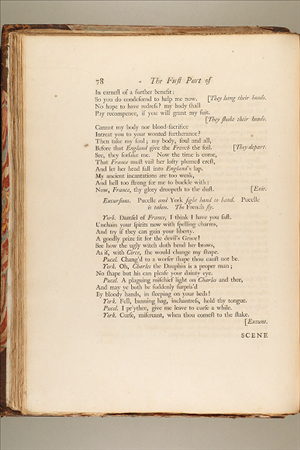 78 - The First Part of
In earnest of a further benefit:
So you do condescend to help me now. [They hang their heads.
No hope to have redress? my body shall
Pay recompence, if you will grant my suit.
[They shake their heads.
Cannot my body nor blood-sacrifice
Intreat you to your wonted furtherance?
Then take my soul; my body, soul and all,
Before that England give the French the foil. [They depart.
See, they forsake me. Now the time is come,
That France must vail her lofty plumed crest,
And let her head fall into England's lap.
My ancient incantations are too weak,
And hell too strong for me to buckle with:
Now, France, thy glory droopeth to the dust. [Exit.
Excursions. Pucelle and York fight hand to hand. Pucelle
is taken. The French fly.
York. Damsel of France, I think I have you fast.
Unchain your spirits now with spelling charms,
And try if they can gain your liberty.
A goodly prize fit for the devil's Grace!
See how the ugly witch doth bend her brows,
As if, with Circe, she would change my shape.
Pucel. Chang'd to a worser shape thou canst not be.
York. Oh, Charles the Dauphin is a proper man;
No shape but his can please your dainty eye.
Pucel. A plaguing mischief light on Charles and thee,
And may ye both be suddenly surpris'd
By bloody hands, in sleeping on your beds!
York. Fell, banning hag, inchantress, hold thy tongue.
Pucel. I pr'ythee, give me leave to curse a while.
York. Curse, miscreant, when thou comest to the stake.
[Exeunt.
SCENE